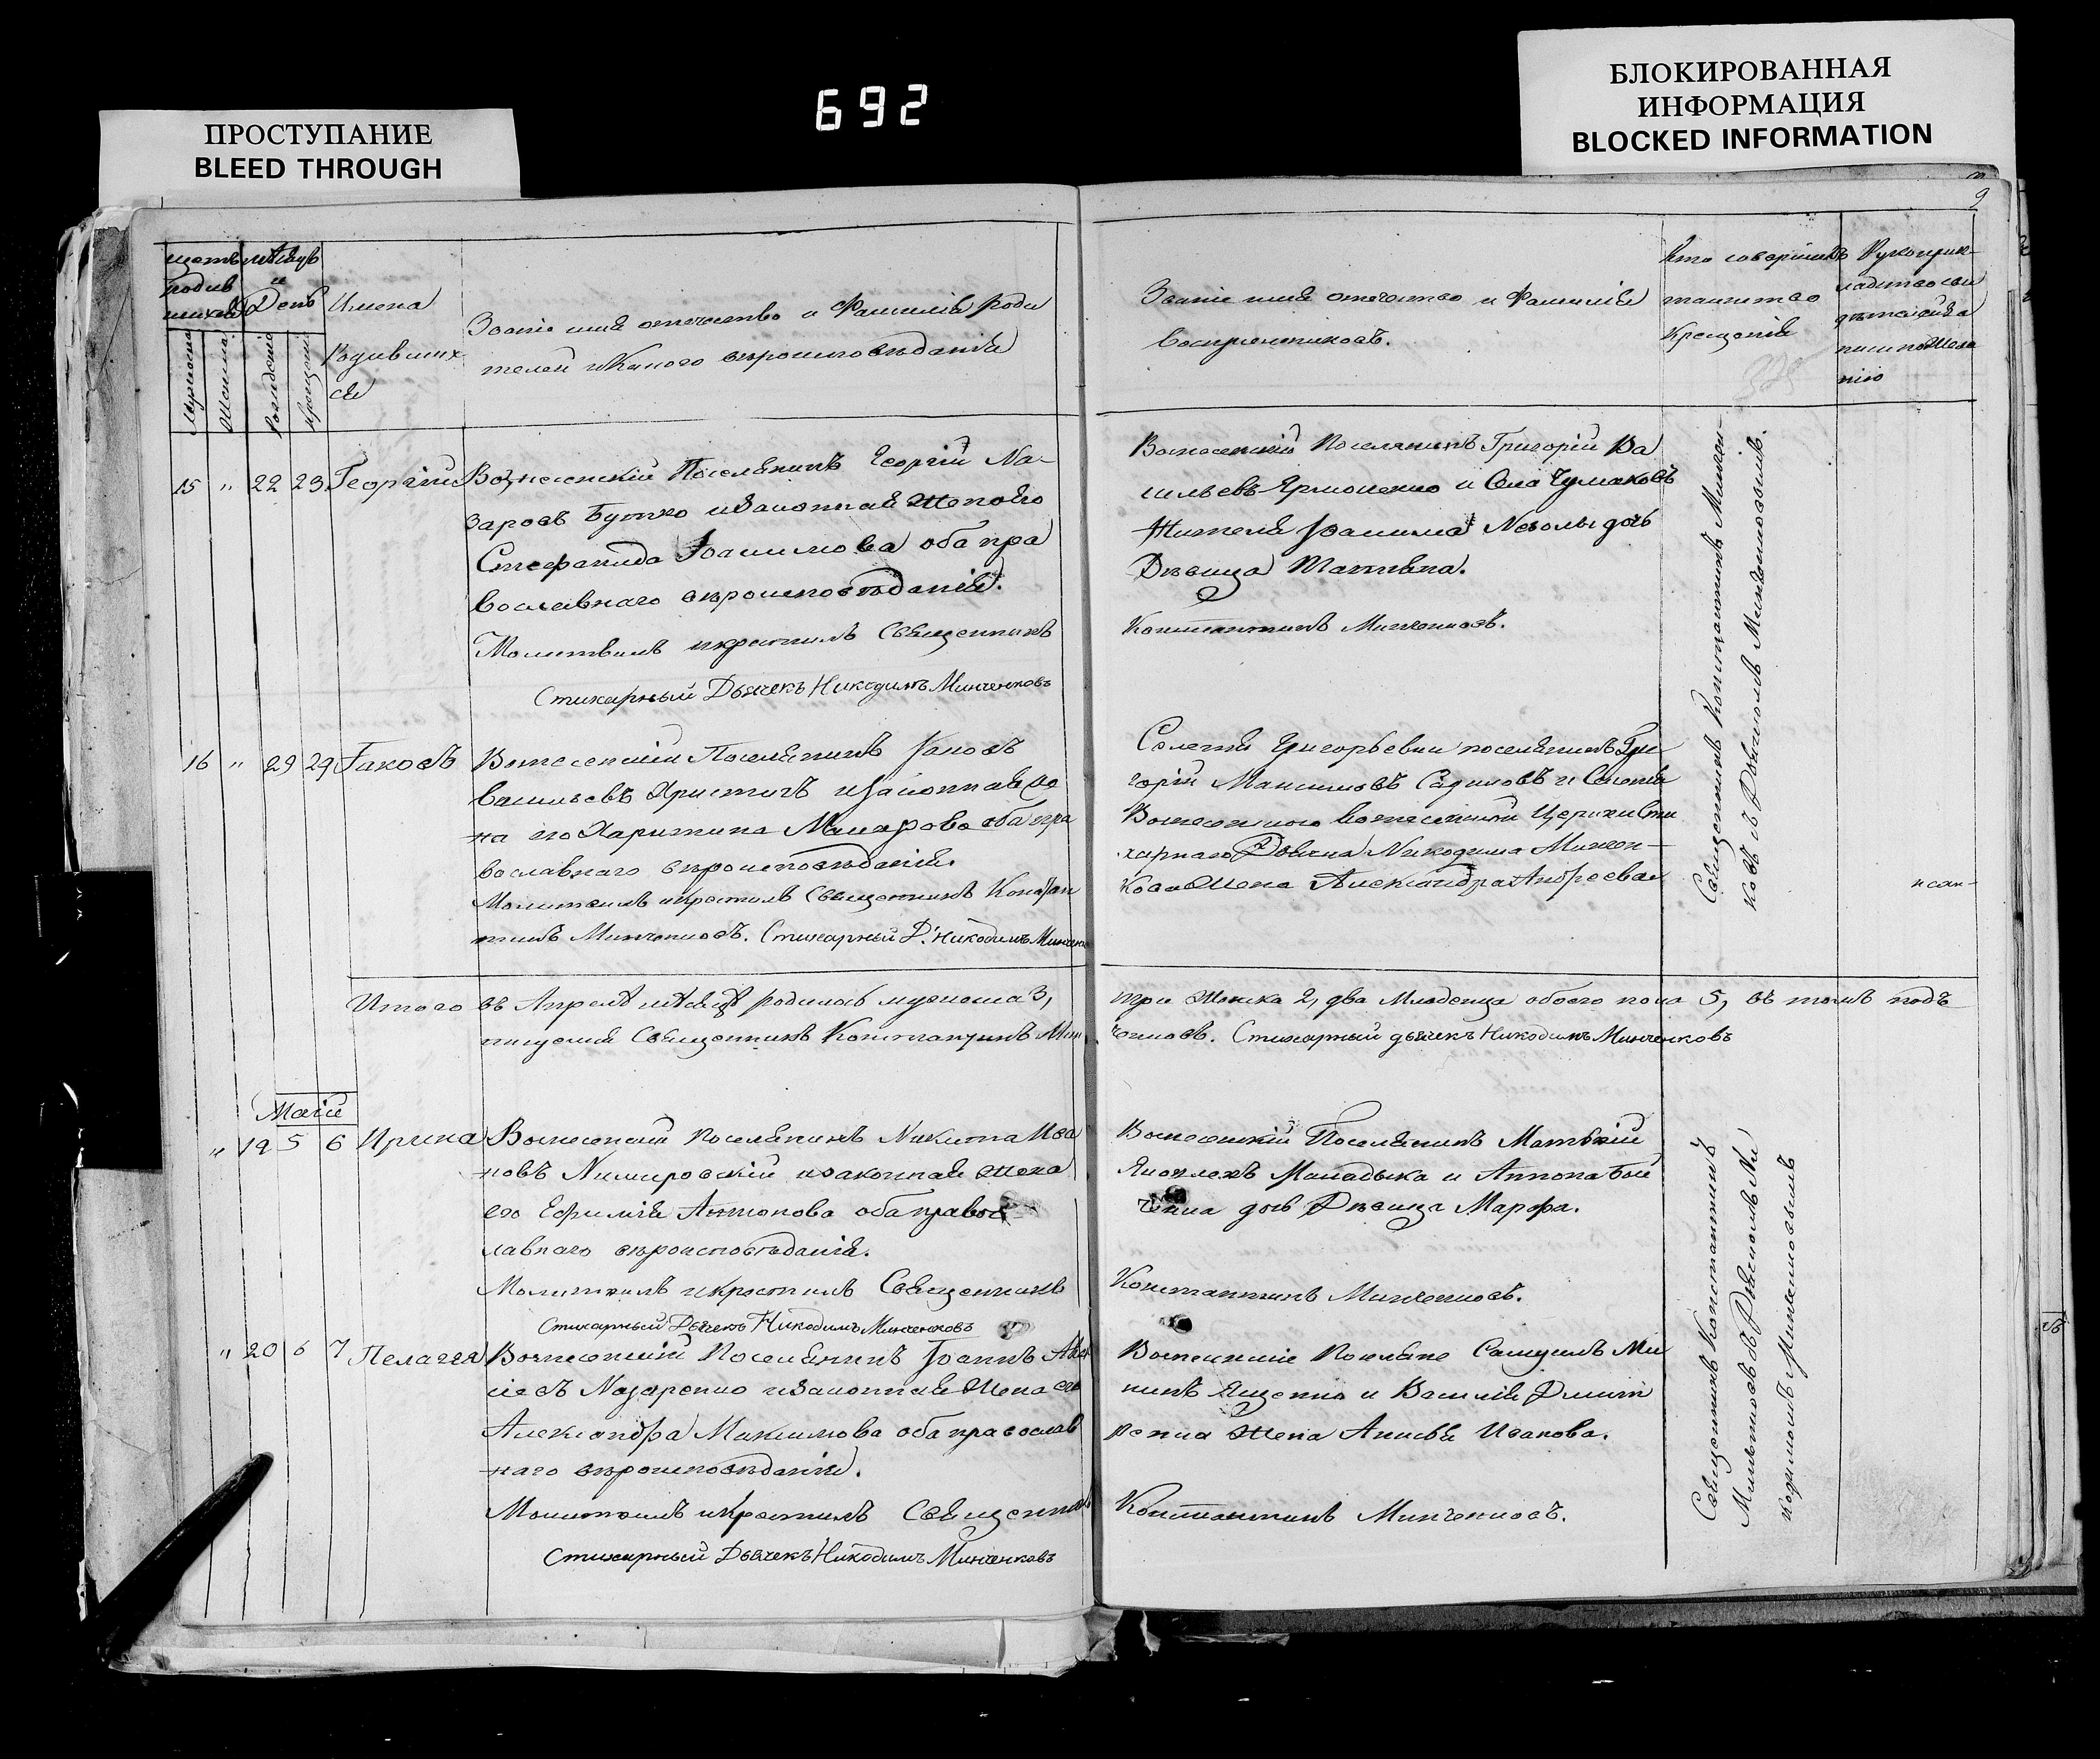 ПРОСТУПАНИЕ
BLEED THROUGH
692
БЛОКИРОВАННАЯ
ИНФОРМАЦИЯ
BLOCKED INFORMATION
9
Имена
Родивших
ся
Званіе имя отечество и Фамилія роди
телей и Какого вѣроисповѣданія
Званіе имя отечество и Фамилія
воспріемниковъ.
Кто совершилъ
таинство
Крещенія
15 " 22 23 Георгій
Вознесенскій Поселянинъ Георгій На-
заровъ Бутко и Законная Жена его
Стефанида Іоакимова оба пра
вославнаго вѣроисповѣданія.
Молитвилъ и крестилъ Священникъ
Стихарный Дьячекъ Никодимъ Минченковъ
Вознесенскій Поселянинъ Григорій Ва
сильевъ Ермоленко и Села Чумаковъ
Жителя Іоакима дочь
Дѣвица Татіяна.
Константинъ Минченковъ.
Священникъ Константинъ Минчен-
ковъ съ Дьячкомъ Минченковымъ.
16 " 29 29 Іаковъ
Вознесенскій Поселянинъ Іаковъ
Васильевъ Христичъ и Законная Же
на его Харитина Макарова оба пра
вославнаго вѣроисповѣданія.
Молитвилъ и крестилъ Священникъ Констан
тинъ Минченковъ. Стихарный Д. Никодимъ Минченко
Григорьевки поселянинъ Гри-
горій Максимовъ Садиловъ и Селенія
Вознесенскаго Вознесенской Церкви Сти
харнаго Дьячка Никодима Минчен-
кова Жена Александра Андреева
Итого въ Апрелѣ мѣсяцѣ родилось мужеска 3,
три Женска 2, два Младенца обоего пола 5, въ томъ подъ
писуемся Священникъ Константинъ Мин
ченковъ. Стихарный дьячекъ Никодимъ Минченковъ
Маій
" 19 5 6 Ирина
Вознесенскій Поселянинъ Никита Ива
новъ Нимировскій и законная Жена
его Ефимія Антонова оба правос
лавнаго вѣроисповѣданія.
Молитвилъ и крестилъ Священникъ
Стихарный Дьячекъ Никодимъ Минченковъ
Вознесенскій Поселянинъ Матѳій
Яковлевъ Маладыка и Антона Бый
ченка дочь Дѣвица Марфа.
Константинъ Минченковъ.
Священникъ Константинъ
Минченковъ съ Дьячкомъ Ни
кодимомъ Минченковымъ
" 20 6 7 Пелагея
Вознесенскій Поселянинъ Іоаннъ Алек
сіевъ Назаренко и Законная Жена его
Александра Максимова оба православ
наго вѣроисповѣданія.
Молитвилъ и Крестилъ Священникъ
Стихарный Дьячекъ Никодимъ Минченковъ
Вознесенскіе Поселяне Самуилъ Ми
нинъ Ященко и Василія Дмит
ренка Жена Анисья Иванова.
Константинъ Минченковъ.